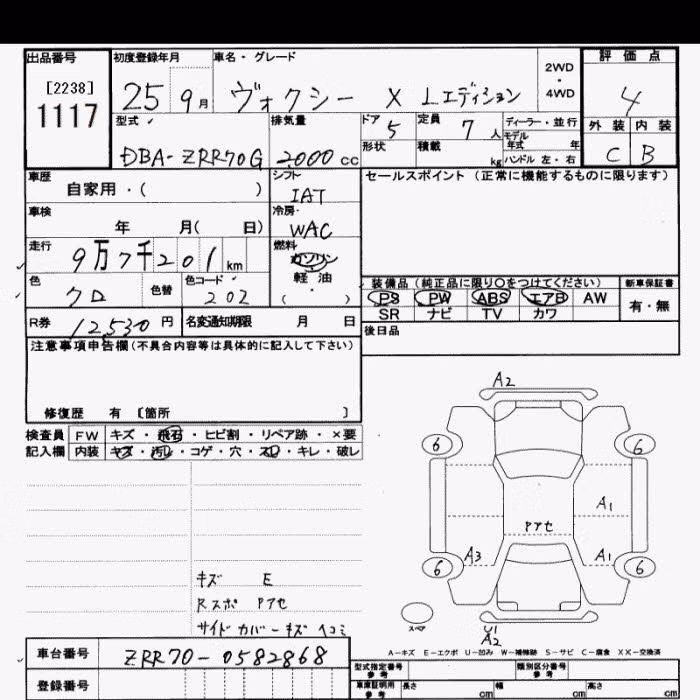 出品番号 初度登録年月 車名・グレード 評価点
[2238] 25 9月 ヴォクシー X Lエディション 2WD・4WD 4
1117 型式 排気量 ドア 定員 ディーラー・並行 外装 内装
DBA-ZRR70G 2000cc 5 7人 モデル年式 年 C B
形状 積載 kg ハンドル 左・右
車歴 シフト セールスポイント(正常に機能するものに限ります)
自家用・( ) IAT
車検 冷房
年 月( 日) WAC
走行 燃料
9万7千201km ガソリン
軽油
( )
色 色替 色コード 装備品(純正品に限り○をつけてください) 新車保証書
クロ 202 PS PW ABS エアB AW 有・無
SR ナビ TV カワ
R券 12530円 名変通知期限 月 日 後日品
注意事項申告欄(不具合内容等は具体的に記入して下さい)
修復歴 有 [箇所 ]
検査員 FW キズ・飛石・ヒビ割・リペア跡・×要
記入欄 内装 キズ・汚れ・コゲ・穴・スレ・キレ・破レ
A2
6 6
A1
Pアセ
A3 A1
6 6
スペア
U1
A2
キズ E
Rスポ Pアセ
サイドカバーキズ ヘコミ
A-キズ E-エクボ U-凹み W-補修跡 S-サビ C-腐食 XX-交換済
車台番号 ZRR70-0582868
型式指定番号 参考 類別区分番号 参考
登録番号
車庫証明用 参考 長さ cm 幅 cm 高さ cm